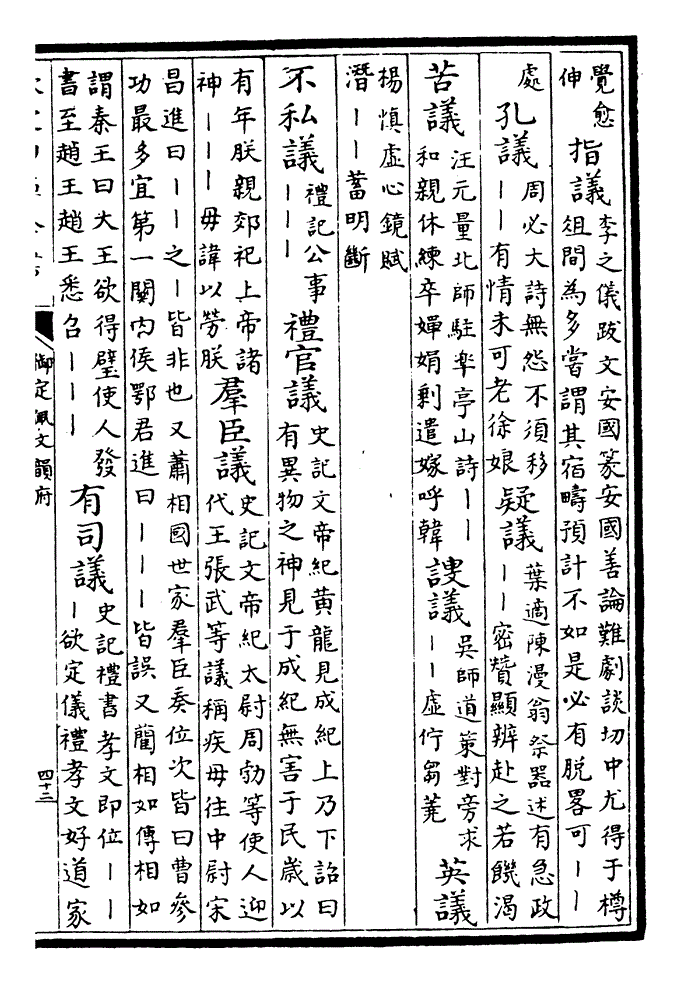 覺愈
伸
指議
李之儀跋文安國篆安國善論難劇談切中尤得于樽
俎間為多嘗謂其宿疇預計不如是必有脱畧可丨丨
處
孔議
周必大詩無怨不須移
丨丨有情未可老徐娘
疑議
葉適陳漫翁祭器述有急政
丨丨密贊顯辨赴之若饑渴
苦議
汪元量北師駐皋亭山詩丨丨
和親休練卒嬋娟剩遣嫁呼韓
謏議
吳師道策對旁求
丨丨虛佇芻蕘
英議
楊慎虛心鏡賦
潛丨丨蓄明斷
不私議
禮記公事
丨丨丨
禮官議
史記文帝紀黃龍見成紀上乃下詔曰
有異物之神見于成紀無害于民歳以
有年朕親郊祀上帝諸
神丨丨丨毋諱以勞朕
羣臣議
史記文帝紀太尉周勃等使人迎
代王張武等議稱疾毋往中尉宋
昌進曰丨丨之丨皆非也又蕭相國世家羣臣奏位次皆曰曹參
功最多宜第一關內侯鄂君進曰丨丨丨皆誤又藺相如傳相如
謂秦王曰大王欲得璧使人發
書至趙王趙王悉召丨丨丨
有司議
史記禮書孝文即位丨丨
丨欲定儀禮孝文好道家
御定佩文韻府
四十三